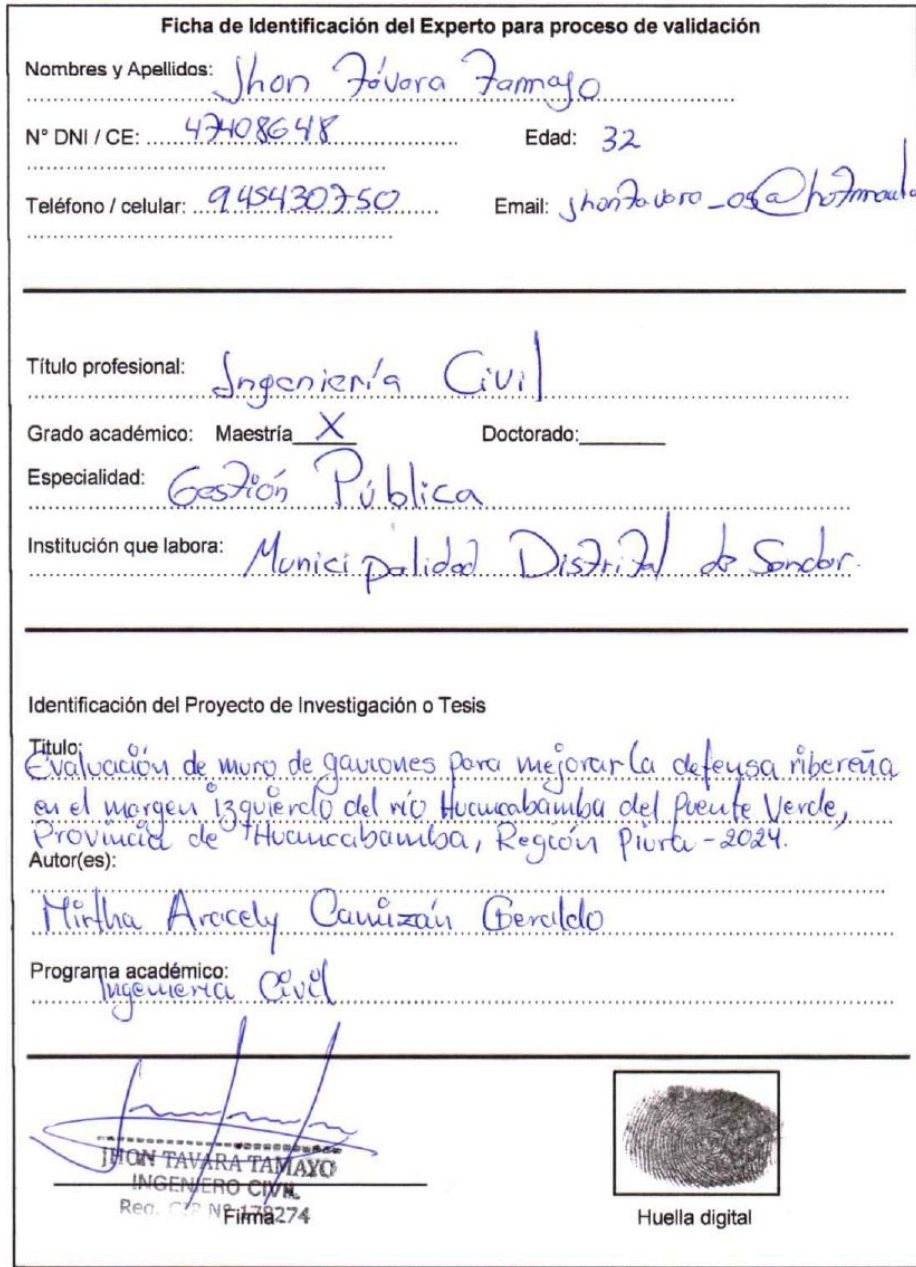 Ficha de Identificación del Experto para proceso de validación
Nombres y Apellidos: Jhon Távara Tamayo
N° DNI / CE: 47408648 Edad: 32
Teléfono / celular: 945430750 Email: jhontavara_05@hotmail
Título profesional: Ingeniería Civil
Grado académico: Maestría X Doctorado:
Especialidad: Gestión Pública
Institución que labora: Municipalidad Distrital de Sondor.
Identificación del Proyecto de Investigación o Tesis
Título:
Evaluación de muro de gaviones para mejorar la defensa ribereña
en el margen izquierdo del río Huancabamba del Puente Verde,
Provincia de Huancabamba, Región Piura - 2024.
Autor(es):
Mirtha Aracely Camizán Geraldo
Programa académico:
Ingenieria Civil
JHON TAVARA TAMAYO
INGENIERO CIVIL
Reg. CIP Nº 178274
Firma
Huella digital